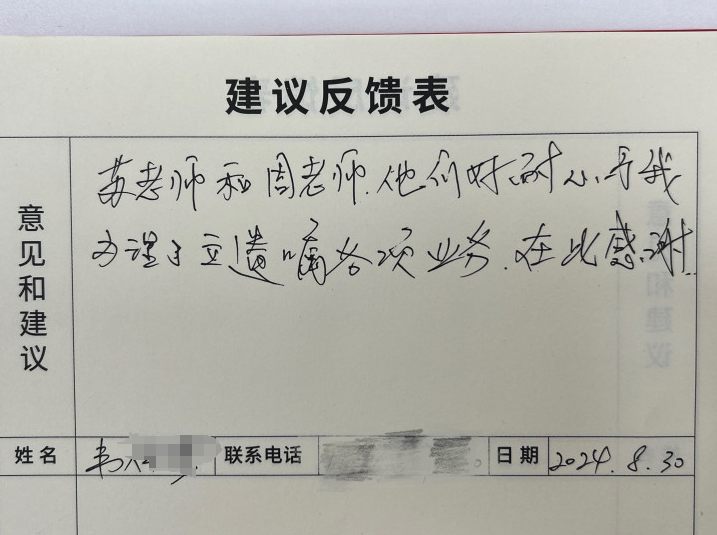 建议反馈表
意见和建议
苏老师和周老师.他们好耐心.与我
办理了立遗嘱各项业务.在此感谢.
姓名
联系电话
日期 2024.8.30